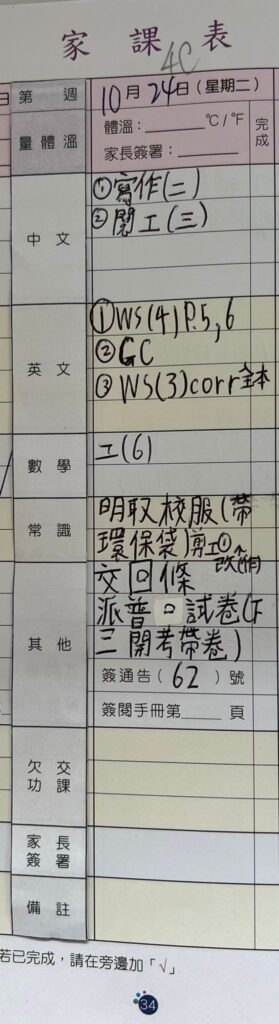 家課表
4C
第 週 10月24日(星期二)
量體溫 體溫：______℃/℉ 完成
家長簽署：______
中文 ①寫作(二)
②閱工(三)
英文 ①WS(4) P.5,6
②GC
③WS(3)corr全本
數學 工(6)
常識 明取校服(帶
環保袋)剪工①
其他 交回條
派普口試卷(下
三開考帶卷)
簽通告(62)號
簽閱手冊第____頁
欠交功課
家長簽署
備註
若已完成，請在旁邊加「√」
34